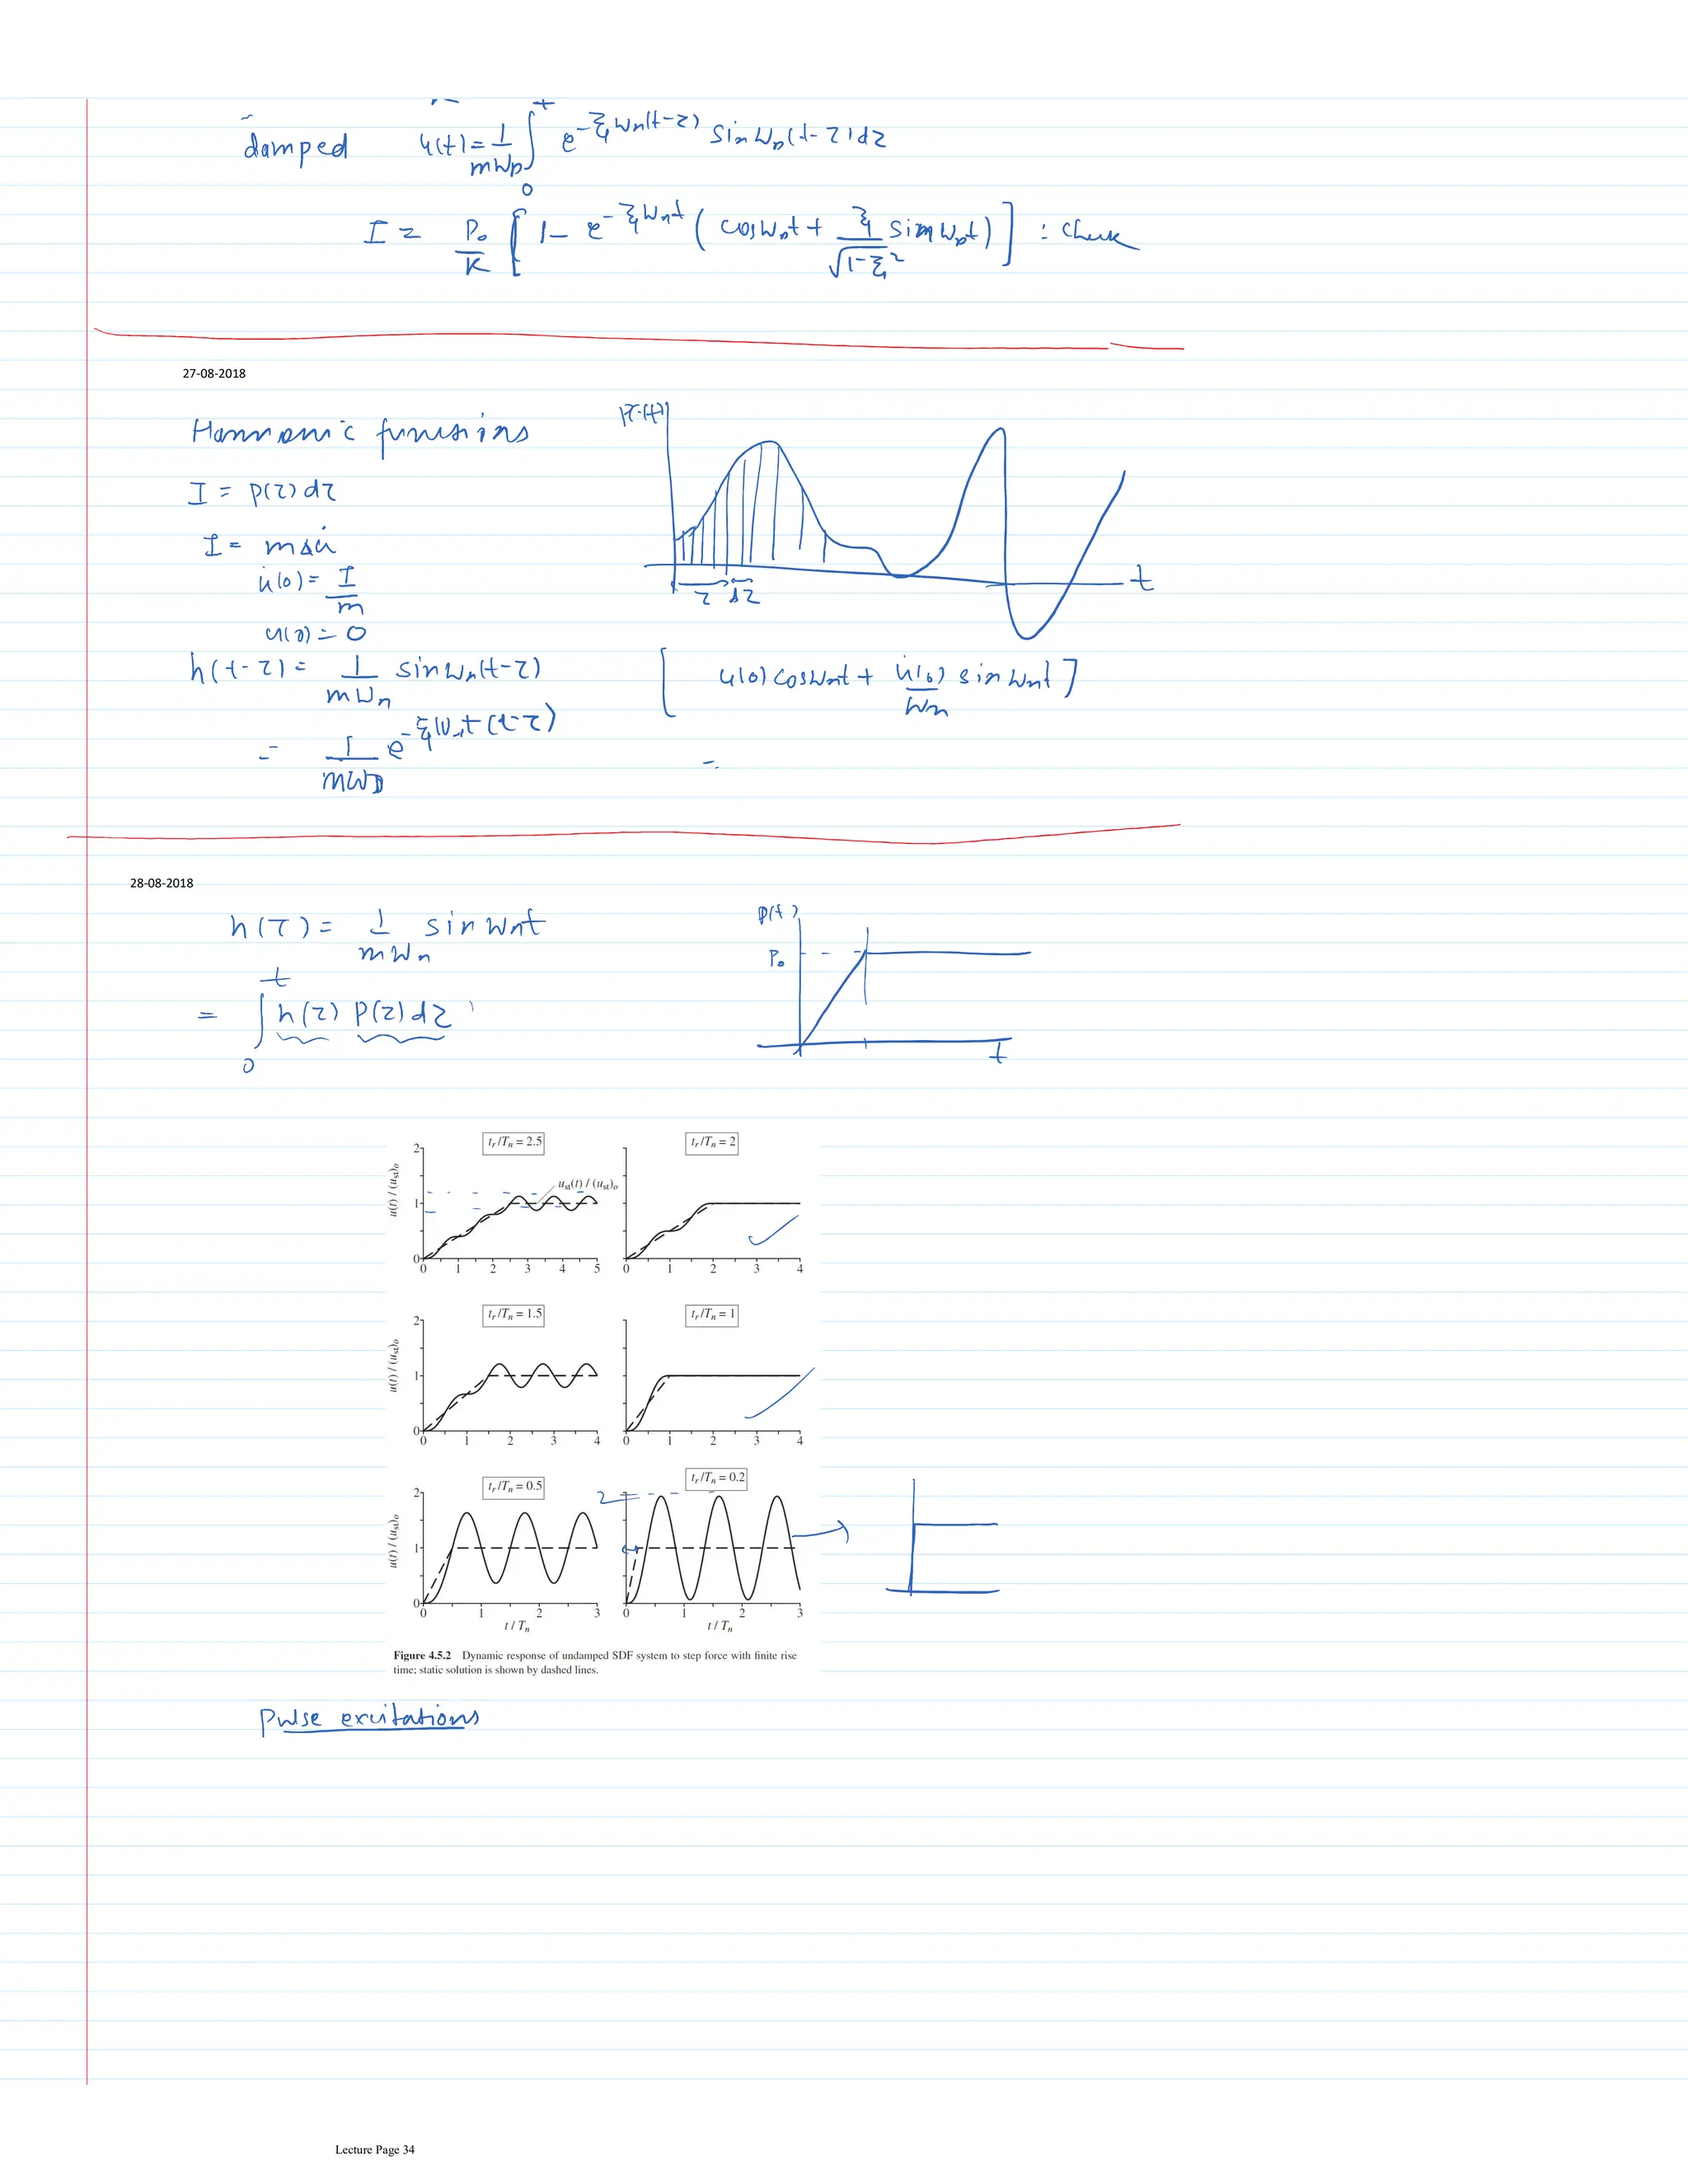 damped u(t) = 1/mωD ∫ 0 t e^-ξωn(t-τ) sin ωD(t-τ)dτ
I = P₀/K [ 1 - e^-ξωnt ( cosωDt + ξ/√1-ξ² sin ωDt) ] : Check
27-08-2018
Harmonic functions
p(t)
I = p(τ)dτ
I = mΔu̇
u̇(0) = I/m
u(0) = 0
τ dτ
t
h(t-τ) = 1/mωn sin ωn(t-τ) [ u(0) cosωnt + u̇(0)/ωn sin ωnt ]
= 1/mωD e^-ξωnt(t-τ) =
28-08-2018
h(τ) = 1/mωn sin ωnt
= ∫ 0 t h(τ) P(τ)dτ
p(t)
P₀
t
tr /Tn = 2.5 tr /Tn = 2
u(t) / (ust)o
ust(t) / (ust)o
2
1
0
0 1 2 3 4 5 0 1 2 3 4
tr /Tn = 1.5 tr /Tn = 1
u(t) / (ust)o
2
1
0
0 1 2 3 4 0 1 2 3 4
tr /Tn = 0.5 tr /Tn = 0.2
u(t) / (ust)o
2 2
1
0
0 1 2 3 0 1 2 3
t / Tn t / Tn
Figure 4.5.2 Dynamic response of undamped SDF system to step force with finite rise
time; static solution is shown by dashed lines.
Pulse excitations
Lecture Page 34